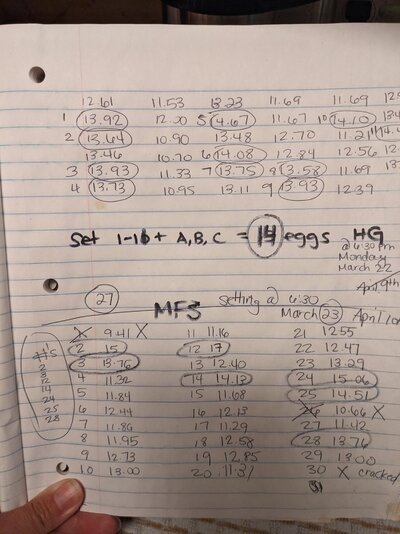 12.61 11.53 13.23 11.69 11.69
1 13.92 12.00 5 14.67 11.67 10 14.10
2 13.64 10.90 13.48 12.70 11.21
13.46 10.70 6 14.08 12.84 12.56
3 13.93 11.33 7 13.75 8 13.58 11.69
4 13.73 10.95 13.11 9 13.93 12.39
Set 1-10 + A, B, C = eggs HG
@ 6:30 pm
Monday
March 22
April 9th
27 MFS Setting @ 6:30
March 23 April
X 9.41 X 11 11.16 21 12.55
2 15 12 17 22 12.47
3 13.76 13 12.40 23 13.29
4 11.32 14 14.13 24 15.06
5 11.84 15 11.68 25 14.51
6 12.44 16 12.13 26 10.66 X
7 11.86 17 11.29 27 11.42
8 11.95 18 12.58 28 13.76
9 12.73 19 12.85 29 13.00
10 13.00 20 11.31 30 X cracked
31
#'s
2
3
12
14
24
25
28